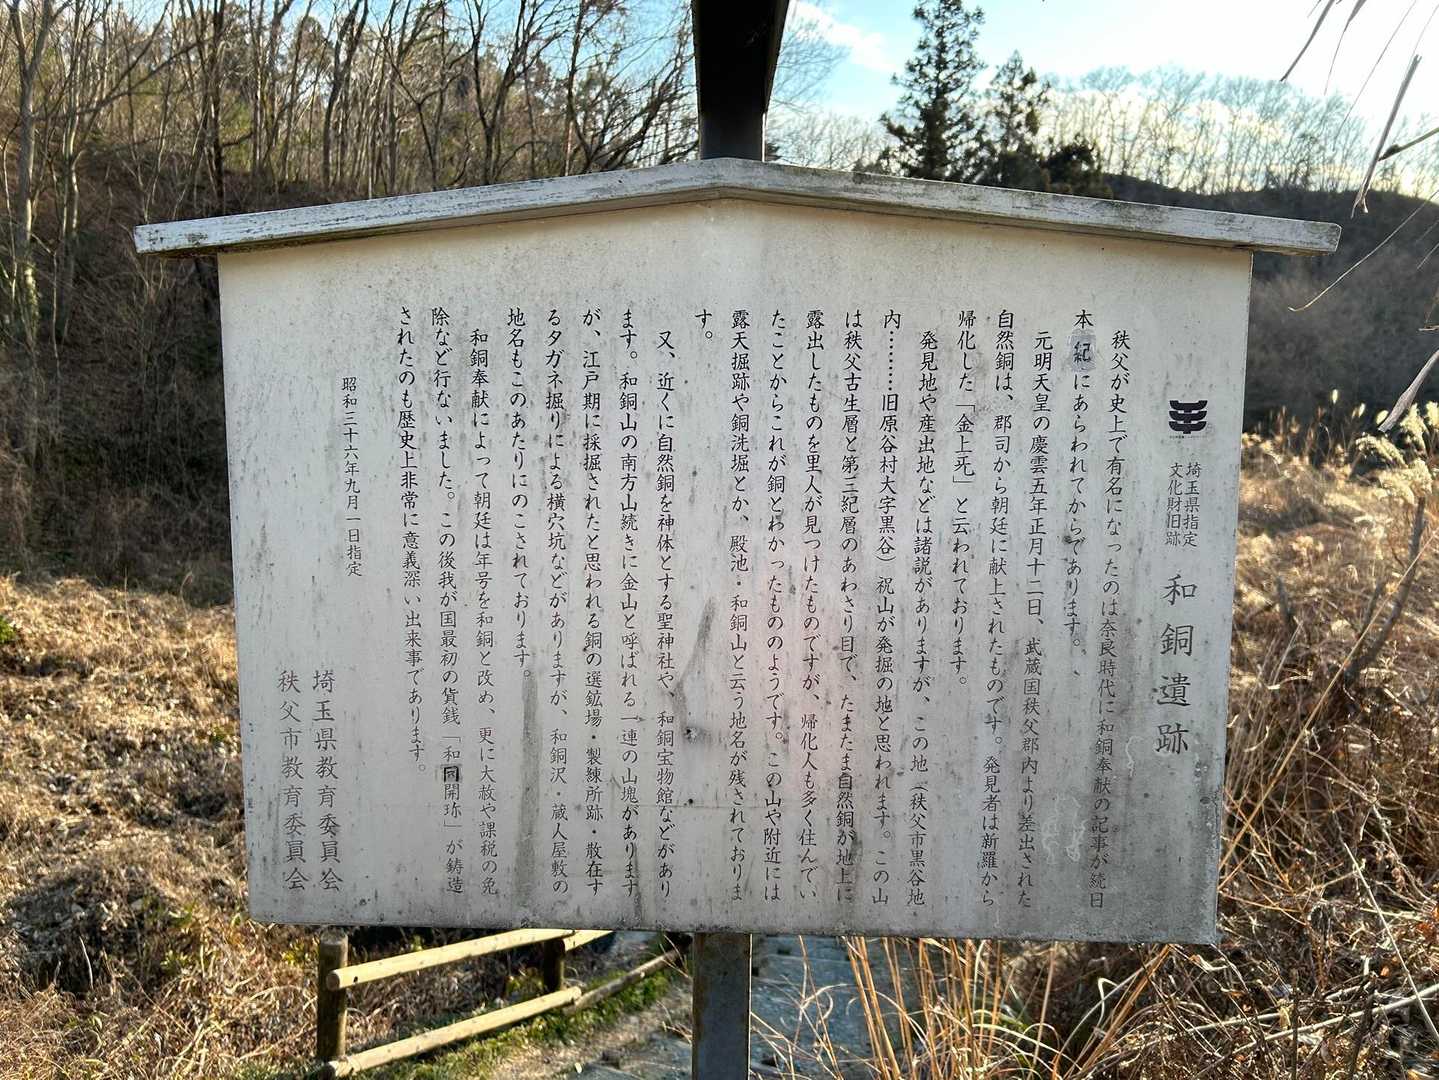 埼玉県指定
文化財旧跡
和銅遺跡
秩父が史上で有名になったのは奈良時代に和銅奉献の記事が続日
本紀にあらわれてからであります。
元明天皇の慶雲五年正月十二日、武蔵国秩父郡内より差出された
自然銅は、郡司から朝廷に献上されたものです。発見者は新羅から
帰化した「金上旡」と云われております。
発見地や産出地などは諸説がありますが、この地（秩父市黒谷地
内………旧原谷村大字黒谷）祝山が発掘の地と思われます。この山
は秩父古生層と第三紀層のあわさり目で、たまたま自然銅が地上に
露出したものを里人が見つけたものですが、帰化人も多く住んでい
たことからこれが銅とわかったもののようです。この山や附近には
露天掘跡や銅洗堀とか、殿池・和銅山と云う地名が残されておりま
す。
又、近くに自然銅を神体とする聖神社や、和銅宝物館などがあり
ます。和銅山の南方山続きに金山と呼ばれる一連の山塊があります
が、江戸期に採掘されたと思われる銅の選鉱場・製練所跡・散在す
るタガネ掘りによる横穴坑などがありますが、和銅沢・蔵人屋敷の
地名もこのあたりにのこされております。
和銅奉献によって朝廷は年号を和銅と改め、更に大赦や課税の免
除など行ないました。この後我が国最初の貨銭「和同開珎」が鋳造
されたのも歴史上非常に意義深い出来事であります。
昭和三十六年九月一日指定
埼玉県教育委員会
秩父市教育委員会